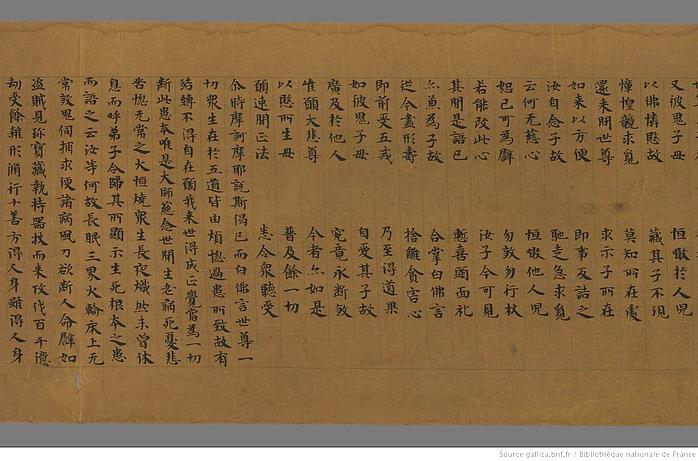 又彼鬼子母 恒噉於人兒
以佛憐愍故 藏其子不現
慞惶競求覓 莫知所在處
還来問世尊 求示子所在
如来以方便 即事反詰之
汝自念子故 馳走急求覓
云何无慈心 恒噉他人兒
恕己可為譬 勿煞勿行杖
若能改此心 汝子今可見
其聞是語已 慙喜頭面礼
亦兼為子故 合掌白佛言
從今盡形壽 捨離貪害心
即前受五戒 乃至得道果
如彼鬼子母 自愛其子故
廣及於他人 究竟永断煞
惟願大悲尊 今者亦如是
以愍所生母 普及餘一切
願速開正法 悉令眾聽受
尒時摩訶摩耶說斯偈已而白佛言世尊一
切眾生在於五道皆由煩惱過患所致故有
結縛不得自在願我来世得成正覺當為一切
断此患本唯是大師慈念世間生老病死憂悲
苦惱无常之火恒燒眾生長夜熾然未曾休
息而呼弟子令歸其所顯示生死根本之患
而語之云汝等何故長眠三界火輪床上无
常煞鬼伺捕求便諸病風刀欲断人命譬如
盗賊見珎寶藏執持器扙而来攻伐百千億
劫受餘雜形備行十善方得人身雖得人身
Source gallica.bnf.fr / Bibliothèque nationale de France